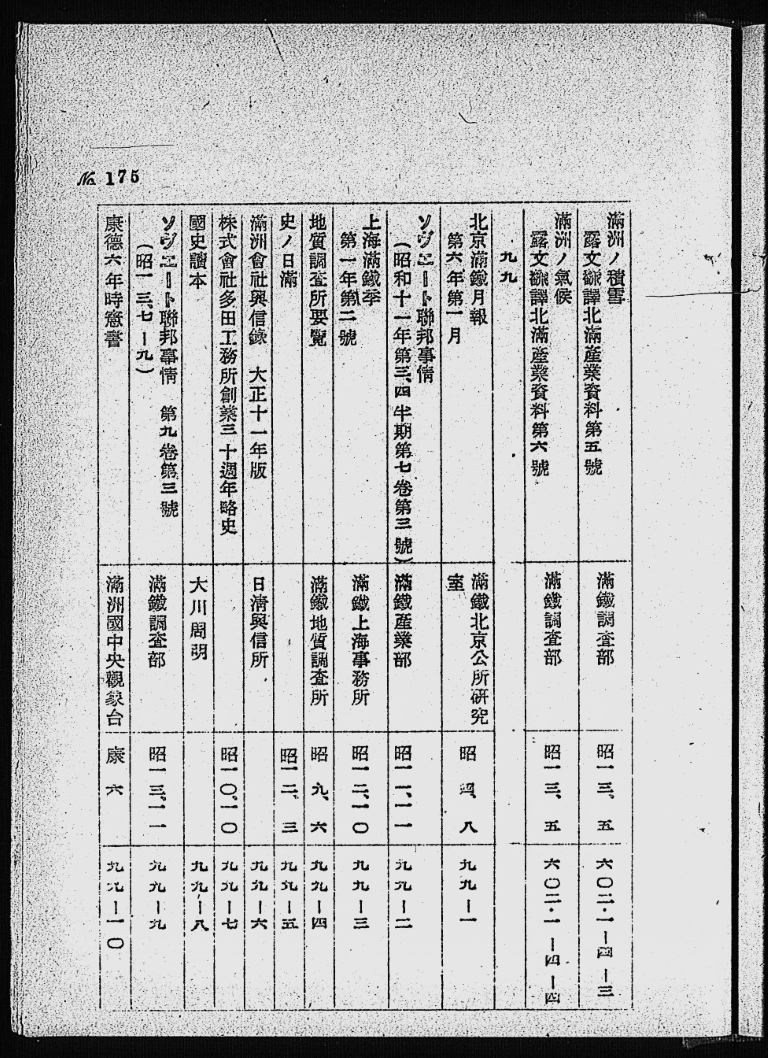 № 175
滿洲ノ積雪
露文飜譯北滿産業資料第五號
滿鐵調査部
昭一三、五
六〇二・一ー四ー三
滿洲ノ氣候
露文飜譯北滿産業資料第六號
滿鐵調査部
昭一三、五
六〇二・一ー四ー四
九九
北京滿鐵月報
第六年第一月
滿鐵北京公所研究
室
昭 四、八
九九ー一
ソヴエート聯邦事情
(昭和十一年第三、四半期第七卷第三號)
滿鐵産業部
昭一一、一一
九九ー二
上海滿鐵季
第一年第二號
滿鐵上海事務所
昭一二、一〇
九九ー三
地質調査所要覽
滿鐵地質調査所
昭 九、六
九九ー四
史ノ日滿
昭一二、三
九九ー五
滿洲會社興信錄 大正十一年版
日淸興信所
九九ー六
株式會社多田工務所創業三十週年略史
昭一〇、一〇
九九ー七
國史讀本
大川周明
九九ー八
ソヴエート聯邦事情 第九卷第三號
(昭一三、七ー九)
滿鐵調査部
昭一三、一一
九九ー九
康德六年時憲書
滿洲國中央觀象台
康 六
九九ー一〇